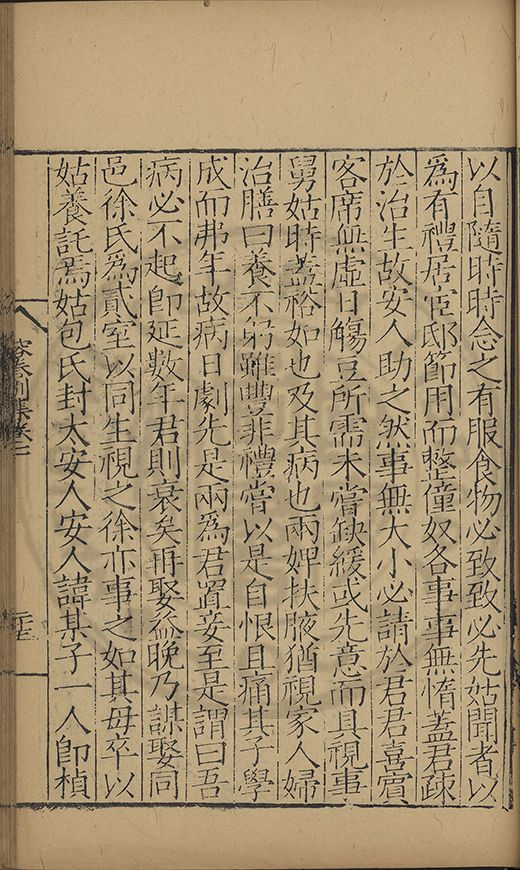 以自隨時時念之有服食物必致致必先姑聞者以
爲有禮居宦邸節用而整僮奴各事事無惰蓋君疎
於治生故安人助之然事無大小必請於君君喜賓
客席無虛日觴豆所需未嘗缺緩或先意而具視事
舅姑時蓋裕如也及其病也兩婢扶腋猶視家人婦
治膳曰養不窮雖豐非禮嘗以是自恨且痛其子學
成而弗年故病日劇先是兩爲君置妾至是謂曰吾
病必不起卽延數年君則衰矣再娶益晚乃謀娶同
邑徐氏爲貳室以同生視之徐亦事之如其母卒以
姑養託焉姑包氏封太安人安人諱某子一人卽楨